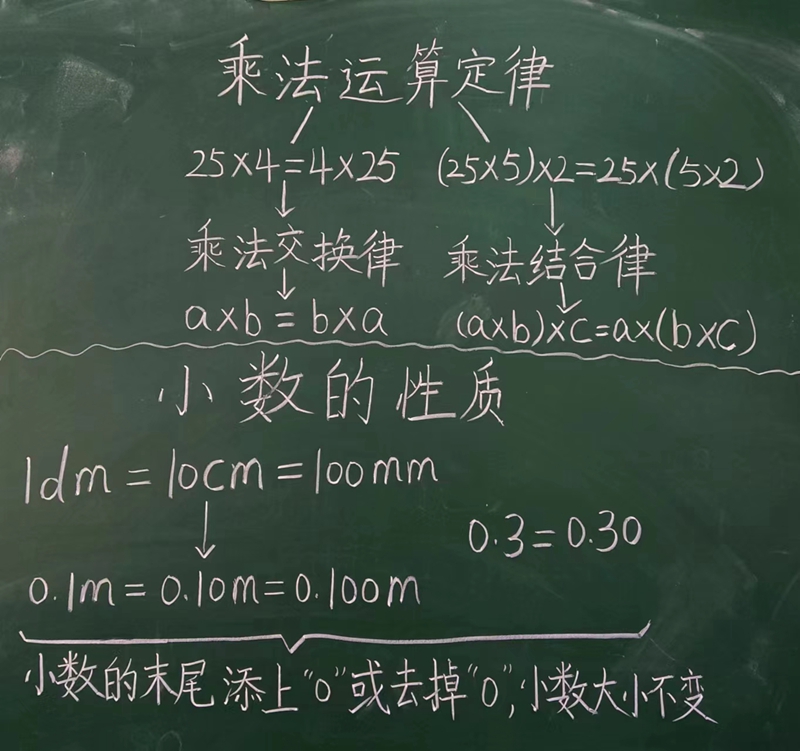 乘法运算定律
25×4=4×25 (25×5)×2=25×(5×2)
乘法交换律 乘法结合律
a×b=b×a (a×b)×c=a×(b×c)
小数的性质
1dm=10cm=100mm
0.3=0.30
0.1m=0.10m=0.100m
小数的末尾添上“0”或去掉“0”,小数大小不变